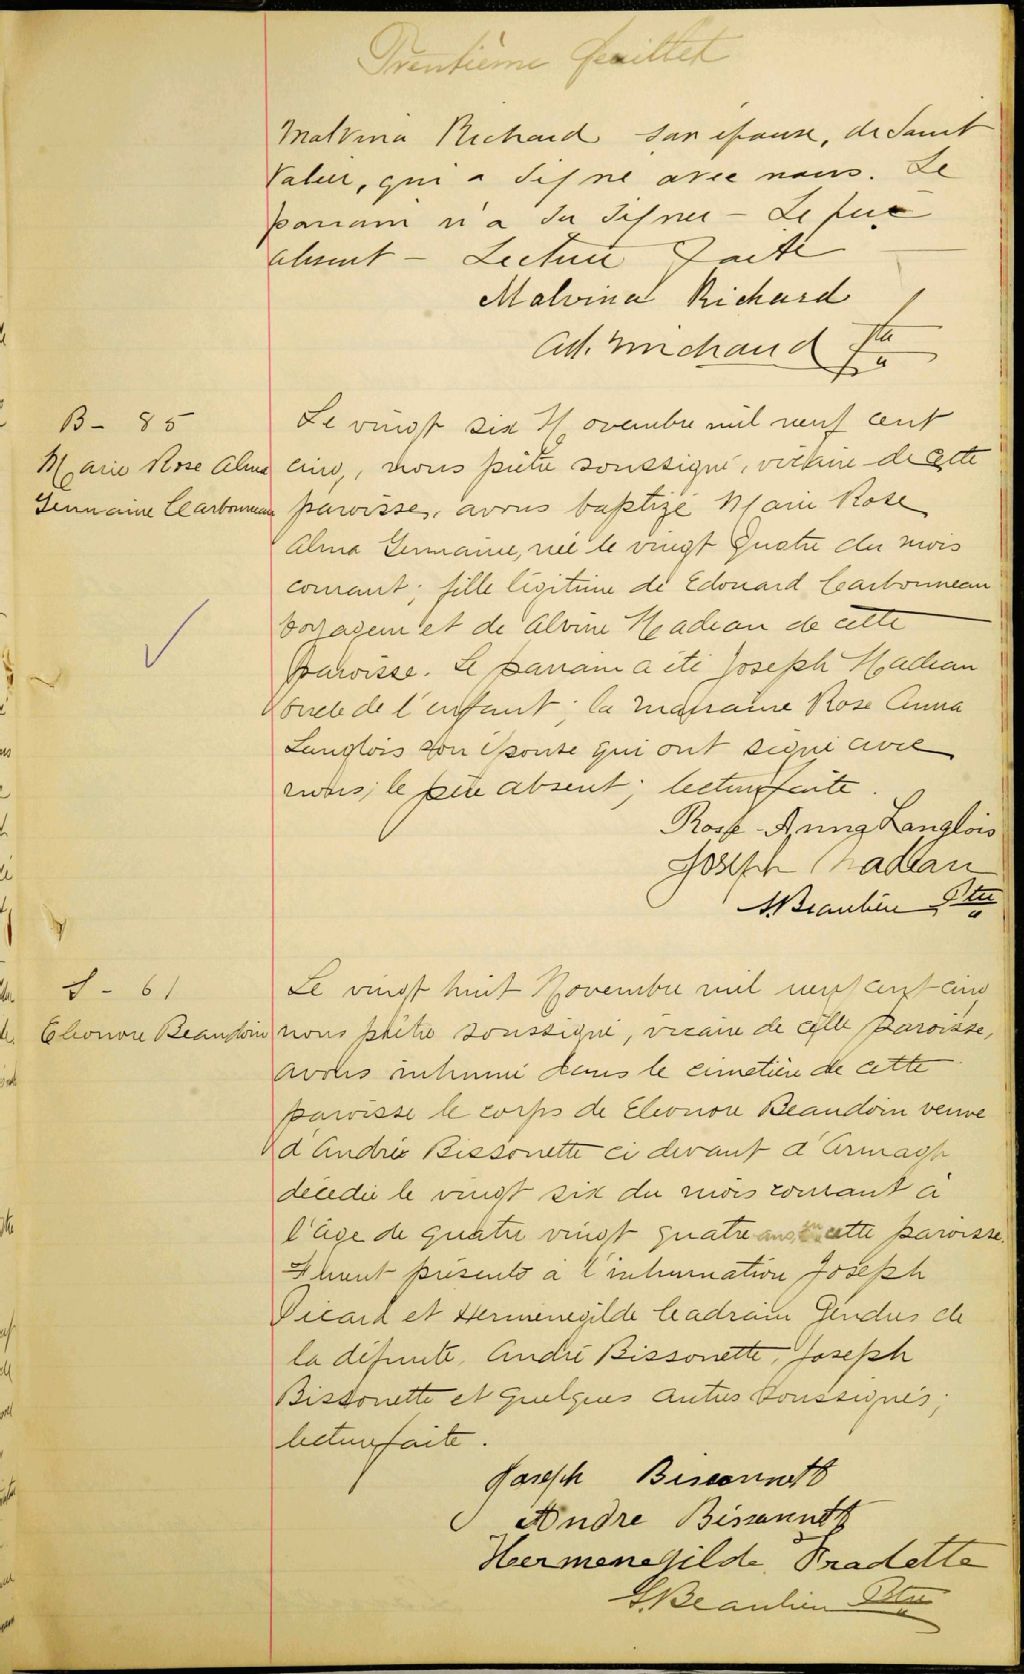 Trentième feuillet
Malvina Richard son épouse, de Saint
Valier, qui a signé avec nous. Le
parrain n'a su signer - Le père
absent - Lecture faite
Malvina Richard
Ad. Michaud Ptre
B - 85
Marie Rose Alma
Germaine Carbonneau
Le vingt six Novembre mil neuf cent
cinq, nous prêtre soussigné, vicaire de cette
paroisse, avons baptizé Marie Rose
Alma Germaine, née le vingt quatre du mois
courant; fille légitime de Edouard Carbonneau
voyageur et de Alvine Nadeau de cette
paroisse. Le parrain a été Joseph Nadeau
oncle de l'enfant; la marraine Rose Anna
Langlois son épouse qui ont signé avec
nous; le père absent; lecture faite.
Rose-Anna Langlois
Joseph Nadeau
S. Beaulieu Ptre
S - 61
Eleonore Beaudoin
Le vingt huit Novembre mil neuf cent cinq
nous prêtre soussigné, vicaire de cette paroisse,
avons inhumé dans le cimetière de cette
paroisse le corps de Eleonore Beaudoin veuve
d'André Bissonette ci devant d'Armagh
décédée le vingt six du mois courant à
l'âge de quatre vingt quatre ans en cette paroisse.
Furent présents à l'inhumation Joseph
Picard et Hermenegilde Gendres de
la défunte, André Bissonette, Joseph
Bissonette et quelques autres soussignés;
lecture faite.
Joseph Bissonnett
Andre Bissonnett
Hermenegilde Fradette
S. Beaulieu Ptre